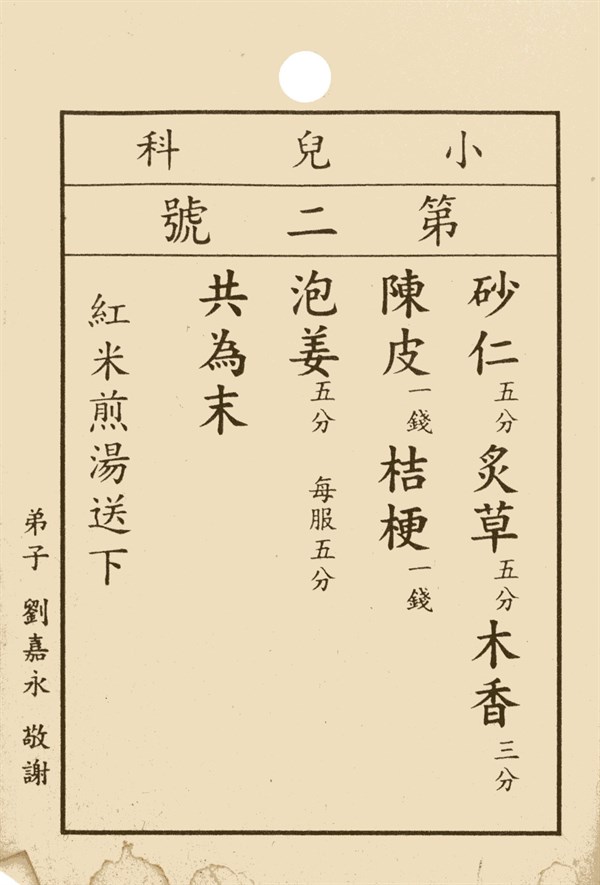 小兒科
第二號
砂仁五分炙草五分木香三分
陳皮一錢桔梗一錢
泡姜五分 每服五分
共為末
紅米煎湯送下
弟子 劉嘉永 敬謝